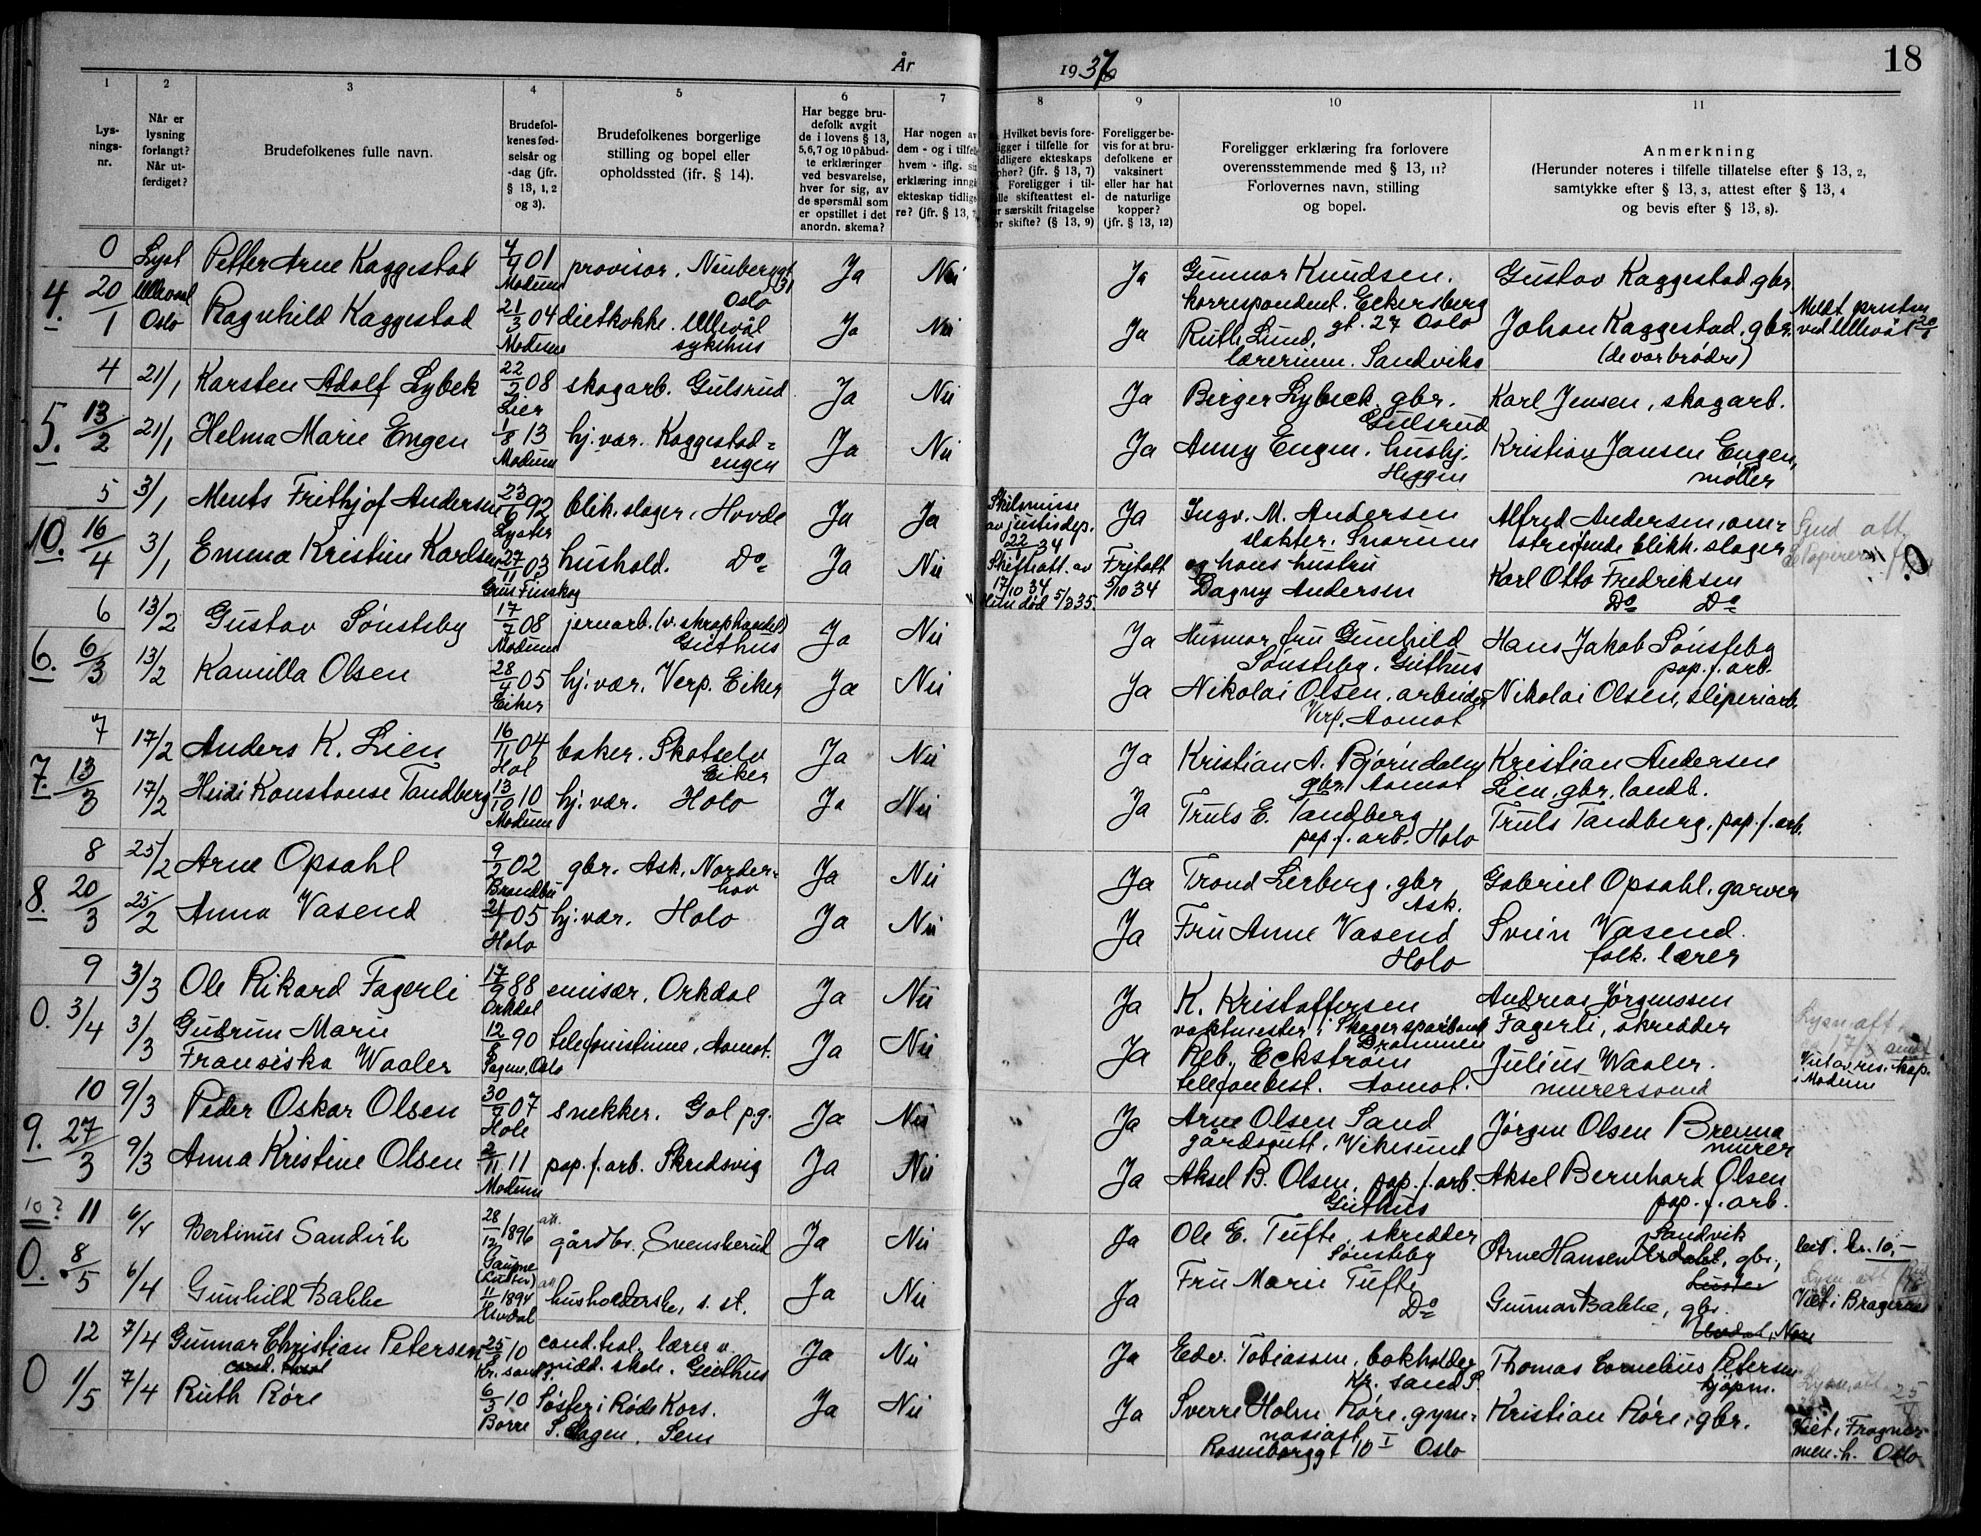 År
1937
18
1
2
3
4
5
6
7
8
9
10
11
Lys-
nings-
nr.
Når er
lysning
forlangt?
Når ut-
ferdiget?
Brudefolkenes fulle navn.
Brudefol-
kenes fød-
selsår og
-dag (jfr.
§ 13, 1, 2
og 3).
Brudefolkenes borgerlige
stilling og bopel eller
opholdssted (ifr. § 14).
Har begge bru-
defolk avgit
de i lovens § 13,
5,6,7 og 10 påbud-
te erklæringer
ved besvarelse,
hver for sig, av
de spørsmål som
er opstillet i det
anordn. skema?
Har nogen av
dem - og i tilfelle
hvem - iflg. sin
erklæring inngå
ekteskap tidlige-
re? (jfr. § 13, 7
Hvilket bevis fore-
ligger i tilfelle for
tidligere ekteskaps
ophør? (jfr. § 13, 7)
Foreligger i til-
elle skifteattest el-
er særskilt fritagelse
or skifte? (§ 13, 9)
Foreligger be-
vis for at bru-
defolkene er
vaksinert
eller har hat
de naturlige
kopper?
(jfr. § 13, 12)
Foreligger erklæring fra forlovere
overensstemmende med § 13, 11?
Forlovernes navn, stilling
og bopel.
Anmerkning
(Herunder noteres i tilfelle tillatelse efter § 13, 2,
samtykke efter § 13, 3, attest efter § 13, 4
og bevis efter § 13, 8).
0 Lyst Petter Arne Kaggestad 4/9 01 Modum provisor, Neuberggt 31 Oslo Ja Nei Ja Gunnar Knudsen, korrespondent. Eckersberg gt. 27 Oslo Gustav Kaggestad, gbr.
4. 20/1 Ullevål Oslo Ragnhild Kaggestad 21/3 04 Modum dietkokke. Ullevål sykehus Ja Nei Ja Ruth Lund, lærerinne. Sandvika Johan Kaggestad, gbr. (de var brødre) Meldt presten ved Ullevål 20/1
4 21/1 Karsten Adolf Lybek 22/2 08 Lier skogarb. Gulsrud Ja Nei Ja Birger Lybeck, gbr. Gulsrud Karl Jensen, skogarb.
5. 13/2 21/1 Helma Marie Engen 1/8 13 Modum hj. vær. Kaggestad-engen Ja Nei Ja Anny Engen, hushj. Heggen Kristian Jansen Engen, møller
5 3/1 Ments Frithjof Andersen 23/6 92 Lyster blik. slager, Hovde Ja Ja Skilsmisse av justisdep. 22/1 34 Ja Ingv. M. Andersen slakter. Snarum Alfred Andersen, om-streifende blikk. slager
10. 16/4 3/1 Emma Kristine Karlsen 27/11 03 Grue Finskog hushold. Do Ja Nei Skifteatt. av 17/10 34 Hun død 5/2 35. Fritatt 5/10 34 og hans hustru Dagny Andersen Karl Otto Fredriksen Do Do
6 13/2 Gustav Sønsteby 17/7 08 Modum jernarb. (v. skraphandel) Geithus Ja Nei Ja Husmor, fru Gunhild Sønsteby. Geithus Hans Jakob Sønsteby pap. f. arb.
6. 6/3 13/2 Kamilla Olsen 28/4 05 Eiker hj. vær. Verp. Eiker Ja Nei Ja Nikolai Olsen, arbeider Verp. Aamot Nikolai Olsen, sleperiarb.
7 17/2 Anders K. Lien 16/11 04 Hol baker. Skotselv Eiker Ja Nei Ja Kristian A. Bjørndalen gbr. Aamot Kristian Andersen Lien, gbr. landb.
7. 13/3 17/2 Heidi Konstanse Tandberg 13/10 10 Modum hj. vær. Holo Ja Nei Ja Truls E. Tandberg pap. f. arb. Holo Truls Tandberg, pap. f. arb.
8 25/2 Arne Opsahl 9/2 02 Brandbu gbr. Ask, Norder-hov Ja Nei Ja Trond Lerberg, gbr Ask. Gabriel Opsahl, garver
8. 20/3 25/2 Anna Vasend 05 Holo hj. vær. Holo Ja Nei Ja Fru Anne Vasend Holo Svein Vasend. folk. lærer
9 3/3 Ole Rikard Fagerli 17/9 88 Orkdal emisær, Orkdal Ja Nei Ja K. Kristoffersen vaktmester i Skoger sparbank Drammen Andreas Jørgenssen Fagerli, skredder
0. 3/4 3/3 Gudrun Marie Fransiska Waaler 12/8 90 Sagene, Oslo telefonistinne, Aamot. Ja Nei Ja Reb. Eckstrøm telefonbest. Aamot. Julius Waaler. murersvend Lysn. att 17/3 sendt Viet av res. kap. i Modum
10 9/3 Peder Oskar Olsen 30/9 07 Hole snekker. Gol pg. Ja Nei Ja Arne Olsen Sand gårdsgutt, Vikesund Jørgen Olsen Brenna murer
9. 27/3 9/3 Anna Kristine Olsen 2/11 11 Modum pap. f. arb. Skredsvig Ja Nei Ja Aksel B. Olsen, pap. f. arb. Geithus Aksel Bernhard Olsen pap. f. arb.
10? 11 6/4 Bertinus Sandvik 28/12 1896 Gaupne (Luster) gårdbr., Svenskerud Ja Nei Ja Ole E. Tufte, skredder Sønsteby Arne Hansen Sandvik, gbr., Luster bet. kr. 10,-
0. 8/5 6/4 Gunhild Bakke 11/1 1894 Uvdal husholderske, s. st. Ja Nei Ja Fru Marie Tufte Do Gunnar Bakke, gbr. Uvdal, Nore Viet i Bragernes
12 7/4 Gunnar Christian Petersen 25/8 10 Kr. sand S. cand. teol. lærer v. midd. skole. Geithus Ja Nei Ja Edv. Tobiassen, bokholder Kr. sand S. Thomas Cornelius Petersen kjøpm.
0 1/5 7/4 Ruth Røre 6/3 10 Borre Søster i Røde Kors. S. Hagen. Sem Ja Nei Ja Sverre Holm Røre, gym-nasiast Rosenborggt 10 I Oslo Kristian Røre, gbr. Lysn. att 25/4 Viet i Frogner men. h. Oslo